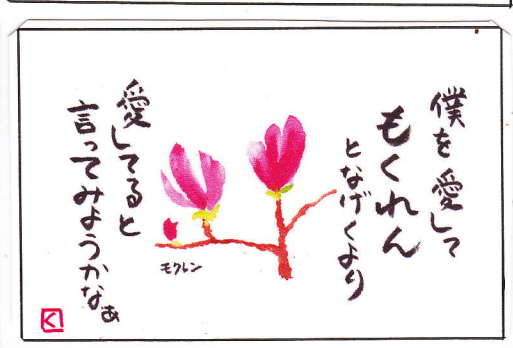 僕を愛して
もくれん
となげくより
愛してると
言ってみようかなぁ
モクレン
K